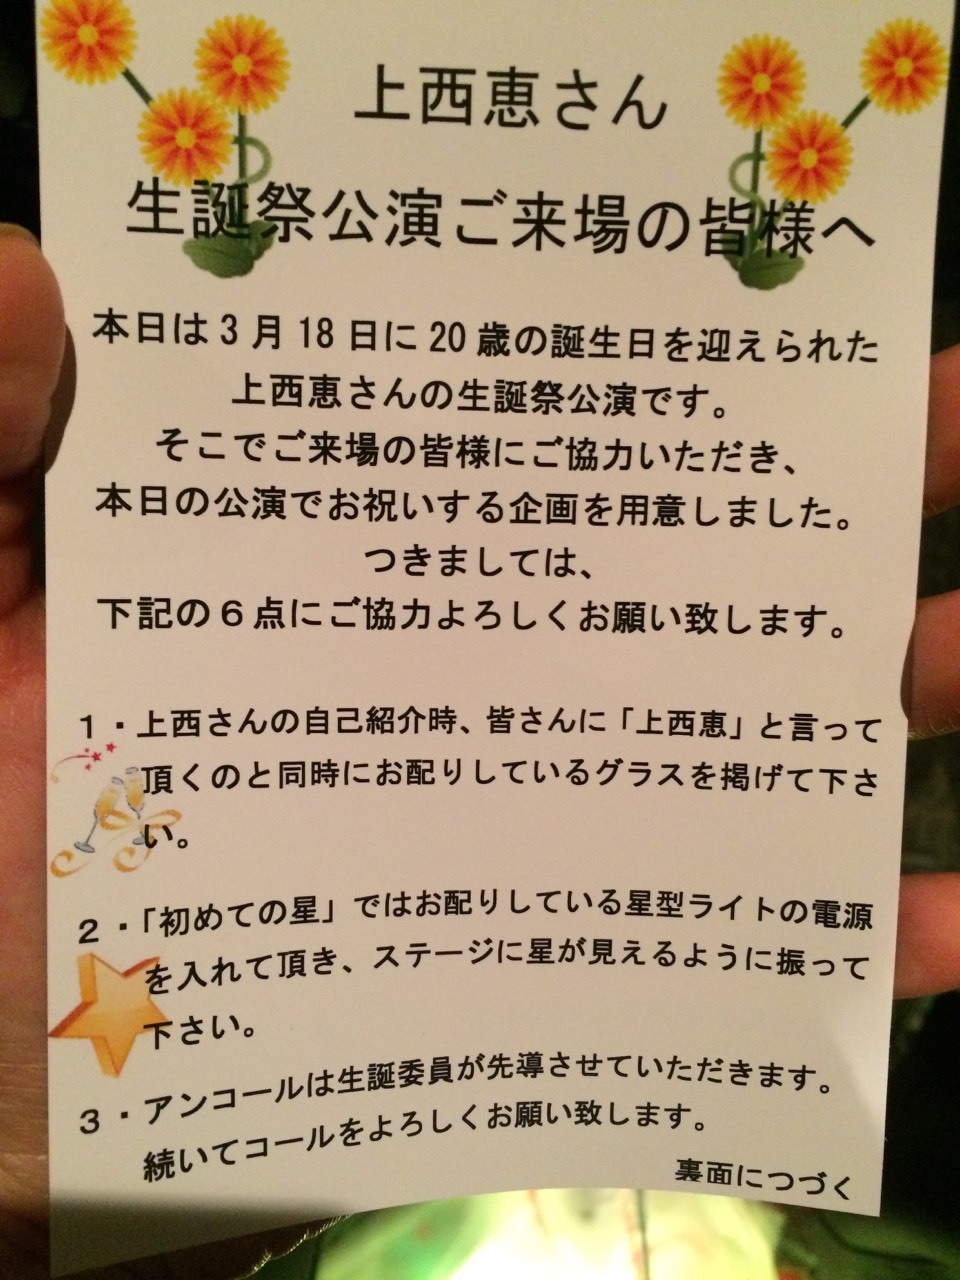 上西恵さん
生誕祭公演ご来場の皆様へ
本日は3月18日に20歳の誕生日を迎えられた
上西恵さんの生誕祭公演です。
そこでご来場の皆様にご協力いただき、
本日の公演でお祝いする企画を用意しました。
つきましては、
下記の6点にご協力よろしくお願い致します。
1・上西さんの自己紹介時、皆さんに「上西恵」と言って
頂くのと同時にお配りしているグラスを掲げて下さ
い。
2・「初めての星」ではお配りしている星型ライトの電源
を入れて頂き、ステージに星が見えるように振って
下さい。
3・アンコールは生誕委員が先導させていただきます。
続いてコールをよろしくお願い致します。
裏面につづく